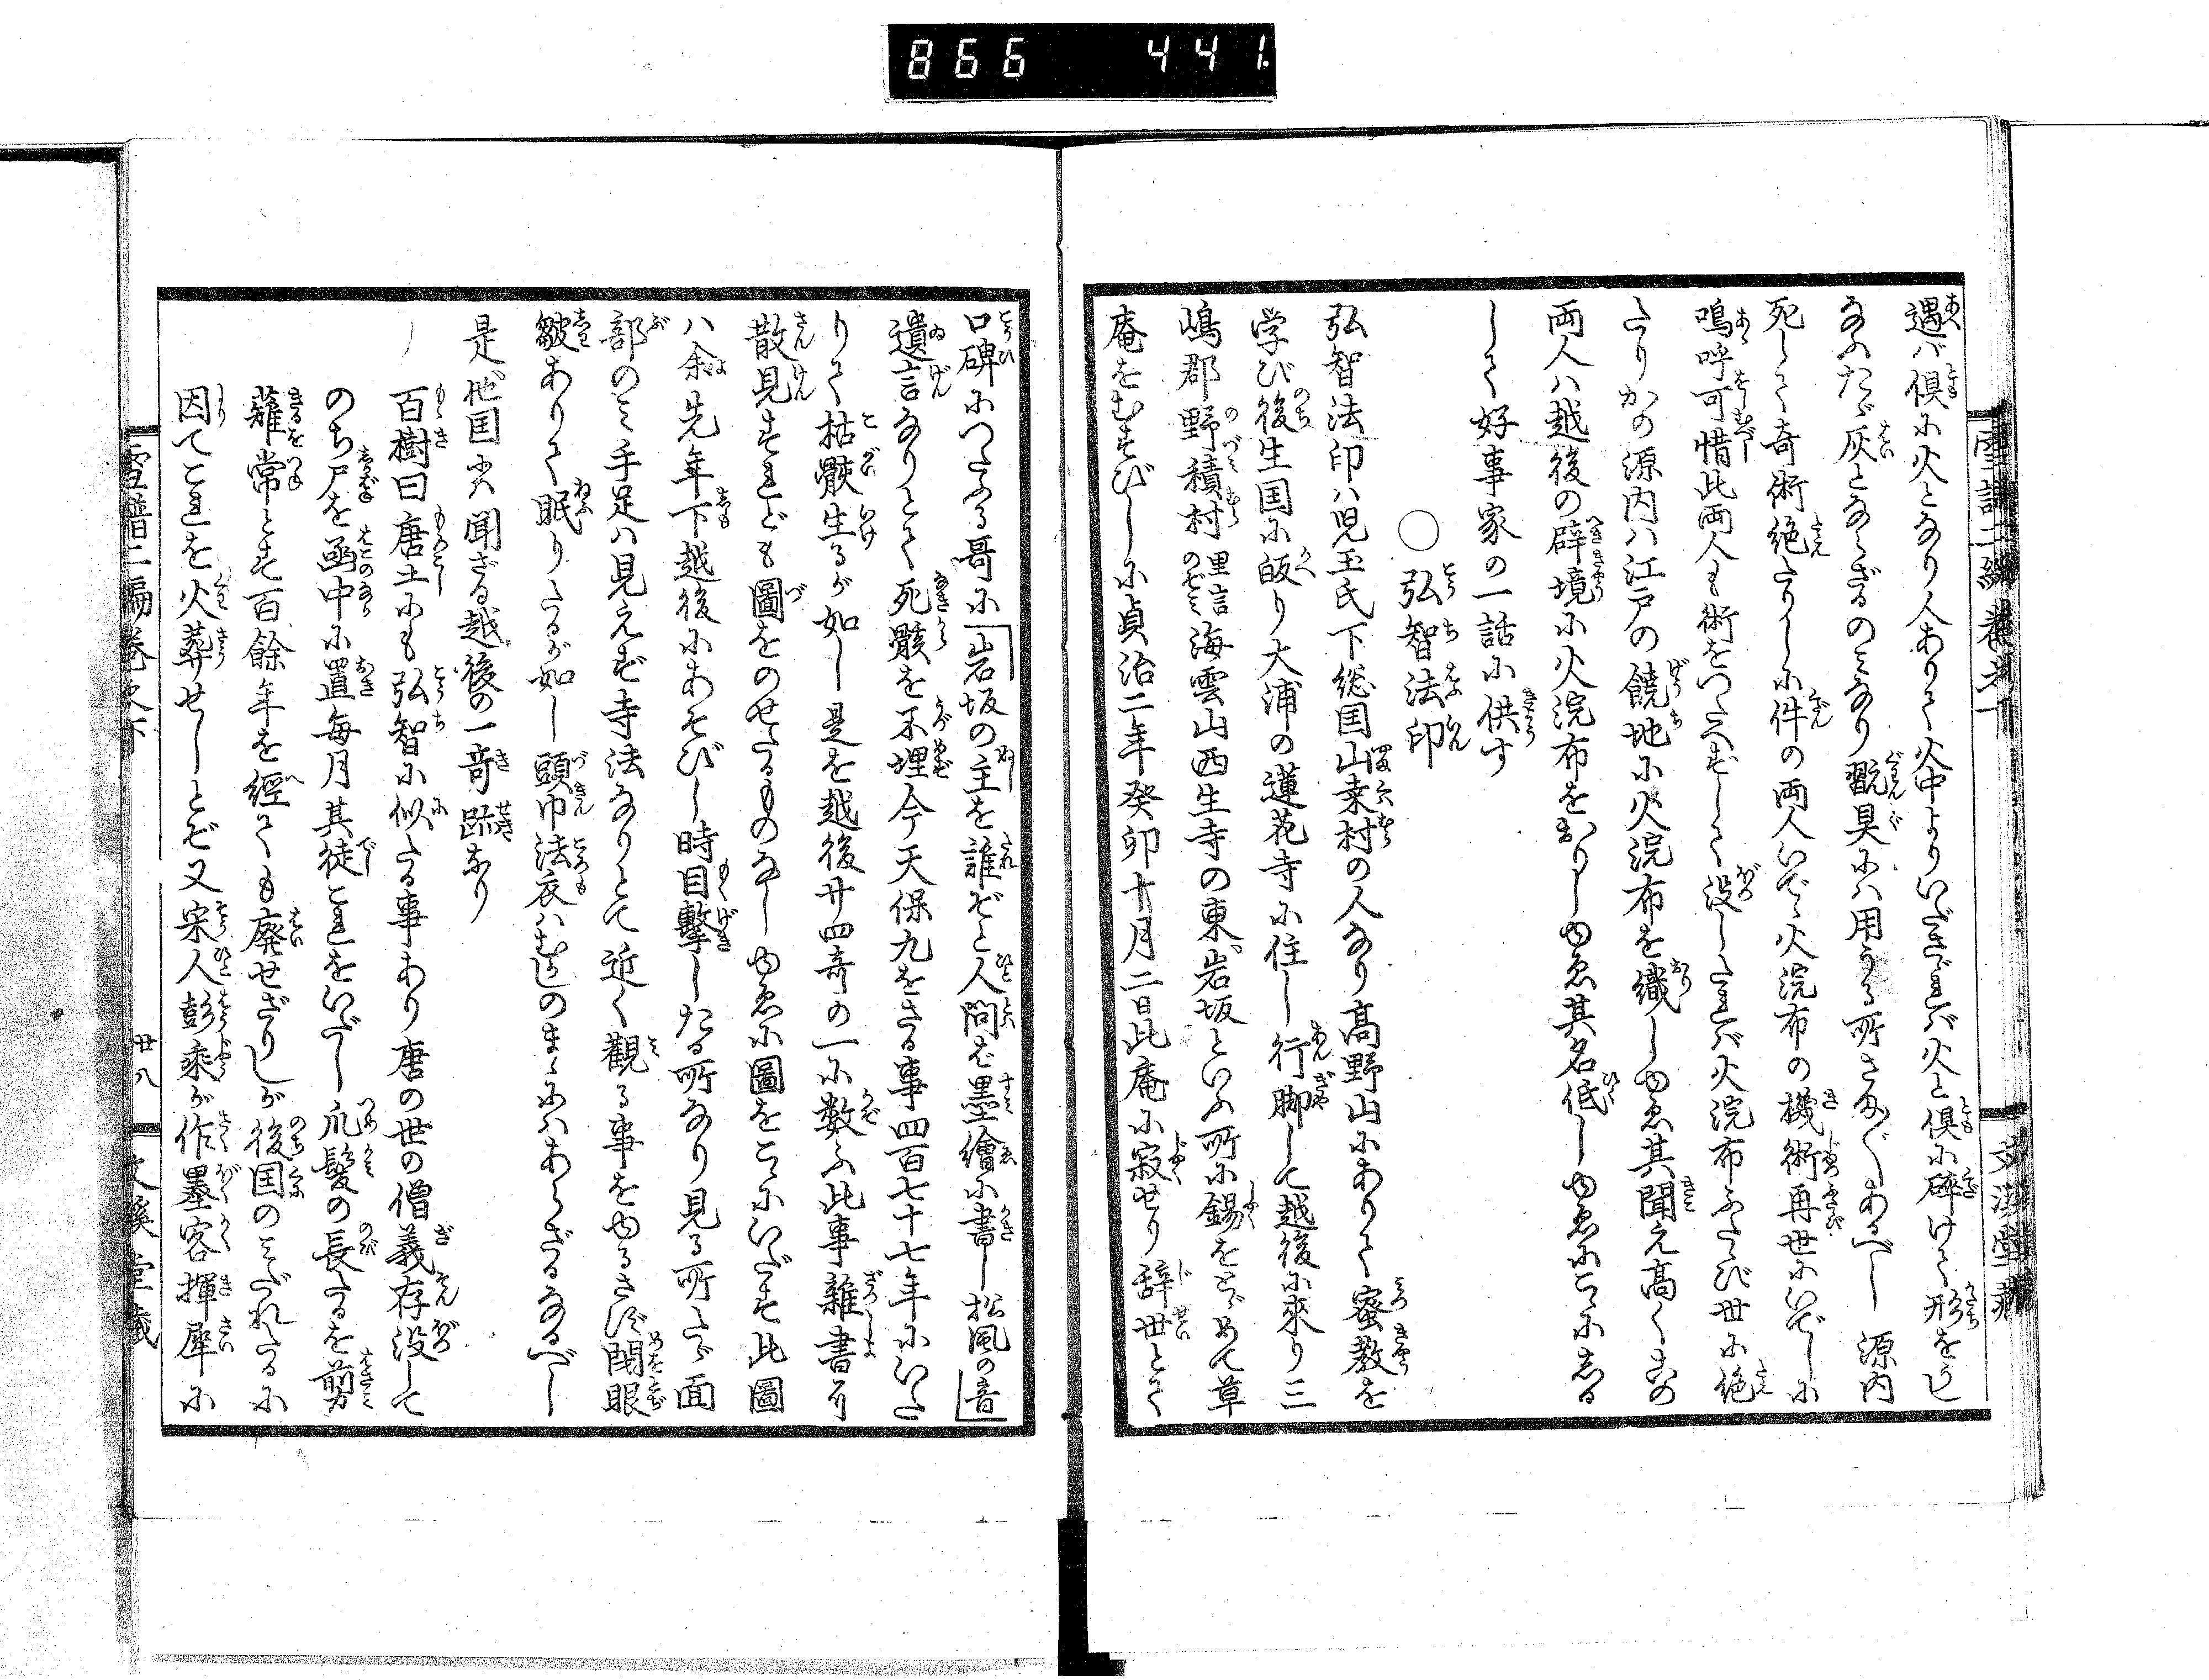 866 441.
遇バ倶に火となり人ありて火中よりいだざれバ火と倶に砕けて形をうしなふたゞ
なふたゞ灰とならざるのミなり翫具にハ用うる所さま〴〵あるべし 源内
死して奇術絶たりしに件の両人いでゝ火浣布の機術再世にいでしに
嗚呼可惜此両人も術をつたへずして没したれバ火浣布ふたゝび世に絶
たりかの源内ハ江戸の饒地に火浣布を織しゆゑ其聞え高くこの
両人ハ越後の辟境に火浣布をおりしゆゑ其名低しゆゑにこゝにしる
して好事家の一話に供す
○弘智法印
弘智法印ハ児玉氏下総国山桒村の人なり高野山にありて蜜教を
学び後生国に皈り大浦の蓮花寺に住し行脚して越後に来り三
嶋郡野積村里言のぞミ海雲山西生寺の東岩坂といふ所に錫をとゞめて草
庵をむすびしに貞治二年癸卯十月二日此庵に寂せり辞世とて
口碑につたふる哥に「岩坂の主を誰ぞと人問ば墨繪に書し松風の音」
遺言なりとて死骸を不埋今天保九をさる事四百七十七年にいた
りて枯骸生るが如し是を越後廿四奇の一に数ふ此事雑書に
散見すれども圖をのせたるものなしゆゑに圖をこゝにいだす此圖
ハ余先年下越後にあそびし時目撃したる所なり見る所たゞ面
部のミ手足ハ見えず寺法なりとて近く觀る事をゆるさず閉眼
皺ありて眠りたるが如し頭巾法衣ハむかしのまゝにハあらざるなるべし
是他国に聞ざる越後の一奇跡なり
百樹曰唐土にも弘智に似たる事あり唐の世の僧義存没して
のち尸を函中に置毎月其徒これをいだし爪髪の長たるを剪
薙常とす百餘年を經ても廃せざりしが後国のミだれたるに
因てこれを火葬せしとぞ又宋人彭乘が作墨客揮犀に
雪譜二編巻之下
廿八
文溪堂藏